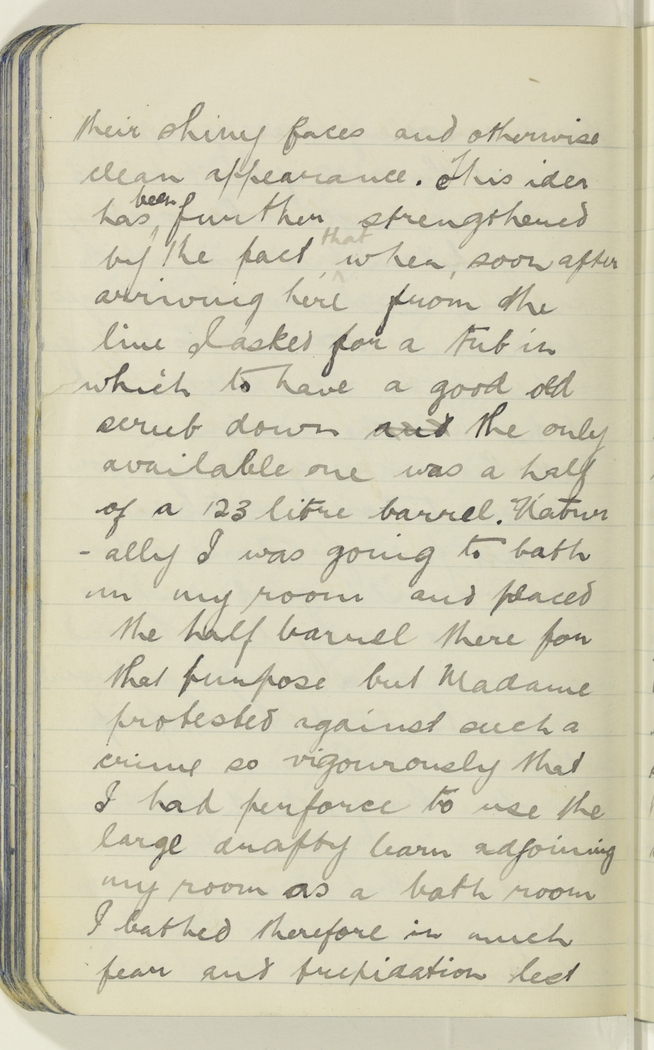 their shiny faces and otherwise
clean appearance. This idea
has been further strengthened
by the fact that when, soon after
arriving here from the
line I asked for a tub in
which to have a good old
scrub down and the only
available one was a half
of a 123 litre barrel. Natur
-ally I was going to bath
in my room and placed
the half barrel there for
that purpose but Madame
protested against such a
crime so vigourously that
I had perforce to use the
large drafty barn adjoining
my room as a bath room
I bathed therefore in much
fear and trepidation lest